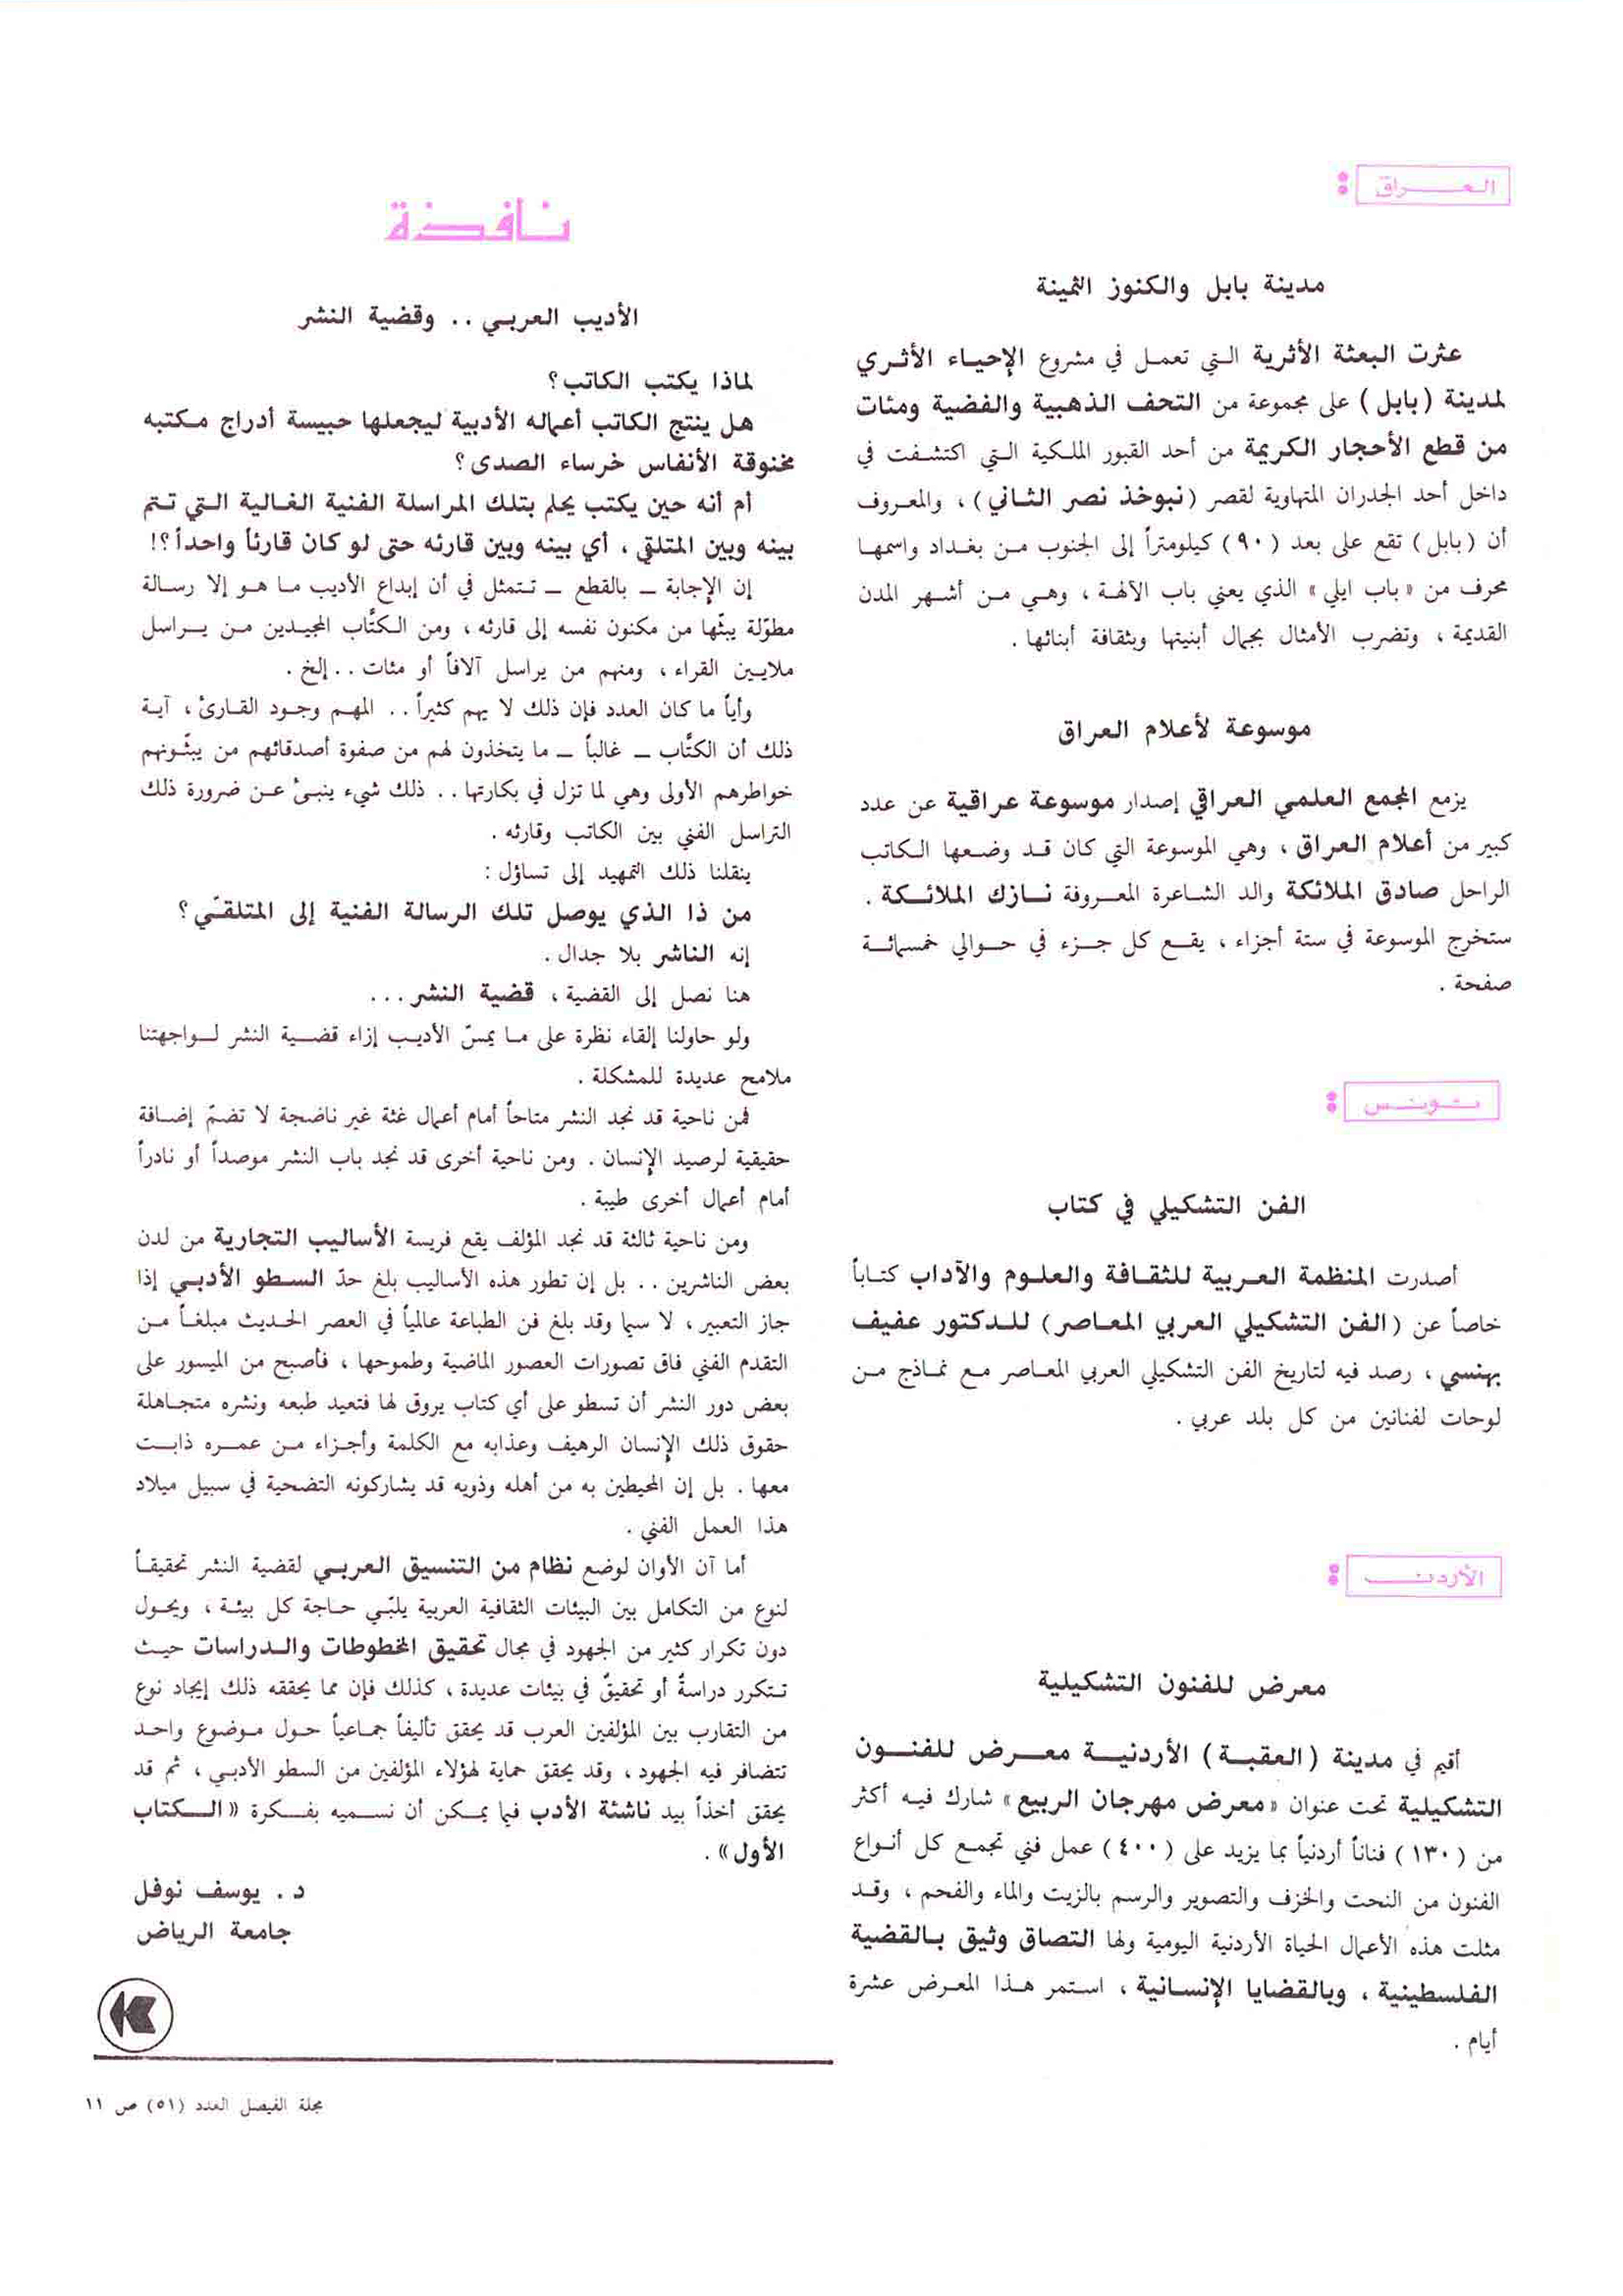 العراق :
مدينة بابل والكنوز الثمينة
عثرت البعثة الأثرية التي تعمل في مشروع الإحياء الأثري
لمدينة (بابل) على مجموعة من التحف الذهبية والفضية ومئات
من قطع الأحجار الكريمة من أحد القبور الملكية التي اكتشفت في
داخل أحد الجدران المتهاوية لقصر (نبوخذ نصر الثاني) ، والمعروف
أن (بابل) تقع على بعد (٩٠) كيلومتراً إلى الجنوب من بغداد واسمها
محرف من «باب ايلي» الذي يعني باب الآلهة ، وهي من أشهر المدن
القديمة ، وتضرب الأمثال بجمال أبنيتها وبثقافة أبنائها .
موسوعة لأعلام العراق
يزمع المجمع العلمي العراقي إصدار موسوعة عراقية عن عدد
كبير من أعلام العراق ، وهي الموسوعة التي كان قد وضعها الكاتب
الراحل صادق الملائكة والد الشاعرة المعروفة نازك الملائكة .
ستخرج الموسوعة في ستة أجزاء ، يقع كل جزء في حوالي خمسمائة
صفحة .
تونس :
الفن التشكيلي في كتاب
أصدرت المنظمة العربية للثقافة والعلوم والآداب كتاباً
خاصاً عن (الفن التشكيلي العربي المعاصر) للدكتور عفيف
بهنسي ، رصد فيه لتاريخ الفن التشكيلي العربي المعاصر مع نماذج من
لوحات لفنانين من كل بلد عربي .
الأردن :
معرض للفنون التشكيلية
أقيم في مدينة (العقبة) الأردنية معرض للفنون
التشكيلية تحت عنوان «معرض مهرجان الربيع» شارك فيه أكثر
من (١٣٠) فناناً أردنياً بما يزيد على (٤٠٠) عمل فني تجمع كل أنواع
الفنون من النحت والخزف والتصوير والرسم بالزيت والماء والفحم ، وقد
مثلت هذه الأعمال الحياة الأردنية اليومية ولها التصاق وثيق بالقضية
الفلسطينية ، وبالقضايا الإنسانية ، استمر هذا المعرض عشرة
أيام .
نافذة
الأديب العربي .. وقضية النشر
لماذا يكتب الكاتب؟
هل ينتج الكاتب أعماله الأدبية ليجعلها حبيسة أدراج مكتبه
مخنوقة الأنفاس خرساء الصدى؟
أم أنه حين يكتب يحلم بتلك المراسلة الفنية الغالية التي تتم
بينه وبين المتلقي ، أي بينه وبين قارئه حتى لو كان قارئاً واحداً؟!
إن الإجابة – بالقطع – تتمثل في أن إبداع الأديب ما هو إلا رسالة
مطوّلة يبثّها من مكنون نفسه إلى قارئه ، ومن الكتَّاب المجيدين من يراسل
ملايين القراء ، ومنهم من يراسل آلافاً أو مئات .. إلخ .
وأياً ما كان العدد فإن ذلك لا يهم كثيراً .. المهم وجود القارئ ، آية
ذلك أن الكتَّاب – غالباً – ما يتخذون لهم من صفوة أصدقائهم من يبثّونهم
خواطرهم الأولى وهي لما تزل في بكارتها .. ذلك شيء ينبئ عن ضرورة ذلك
التراسل الفني بين الكاتب وقارئه .
ينقلنا ذلك التمهيد إلى تساؤل :
من ذا الذي يوصل تلك الرسالة الفنية إلى المتلقّي؟
إنه الناشر بلا جدال .
هنا نصل إلى القضية ، قضية النشر ...
ولو حاولنا إلقاء نظرة على ما يمسّ الأديب إزاء قضية النشر لواجهتنا
ملامح عديدة للمشكلة .
فمن ناحية قد نجد النشر متاحاً أمام أعمال غثة غير ناضجة لا تضمّ إضافة
حقيقية لرصيد الإنسان . ومن ناحية أخرى قد نجد باب النشر موصداً أو نادراً
أمام أعمال أخرى طيبة .
ومن ناحية ثالثة قد نجد المؤلف يقع فريسة الأساليب التجارية من لدن
بعض الناشرين .. بل إن تطور هذه الأساليب بلغ حدّ السطو الأدبي إذا
جاز التعبير ، لا سيما وقد بلغ فن الطباعة عالمياً في العصر الحديث مبلغاً من
التقدم الفني فاق تصورات العصور الماضية وطموحها ، فأصبح من الميسور على
بعض دور النشر أن تسطو على أي كتاب يروق لها فتعيد طبعه ونشره متجاهلة
حقوق ذلك الإنسان الرهيف وعذابه مع الكلمة وأجزاء من عمره ذابت
معها . بل إن المحيطين به من أهله وذويه قد يشاركونه التضحية في سبيل ميلاد
هذا العمل الفني .
أما آن الأوان لوضع نظام من التنسيق العربي لقضية النشر تحقيقاً
لنوع من التكامل بين البيئات الثقافية العربية يلبّي حاجة كل بيئة ، ويحول
دون تكرار كثير من الجهود في مجال تحقيق المخطوطات والدراسات حيث
تتكرر دراسةٌ أو تحقيقٌ في بيئات عديدة ، كذلك فإن مما يحققه ذلك إيجاد نوع
من التقارب بين المؤلفين العرب قد يحقق تأليفاً جماعياً حول موضوع واحد
تتضافر فيه الجهود ، وقد يحقق حماية لهؤلاء المؤلفين من السطو الأدبي ، ثم قد
يحقق أخذاً بيد ناشئة الأدب فيما يمكن أن نسميه بفكرة «الكتاب
الأول» .
د . يوسف نوفل
جامعة الرياض
مجلة الفيصل العدد (٥١) ص ١١